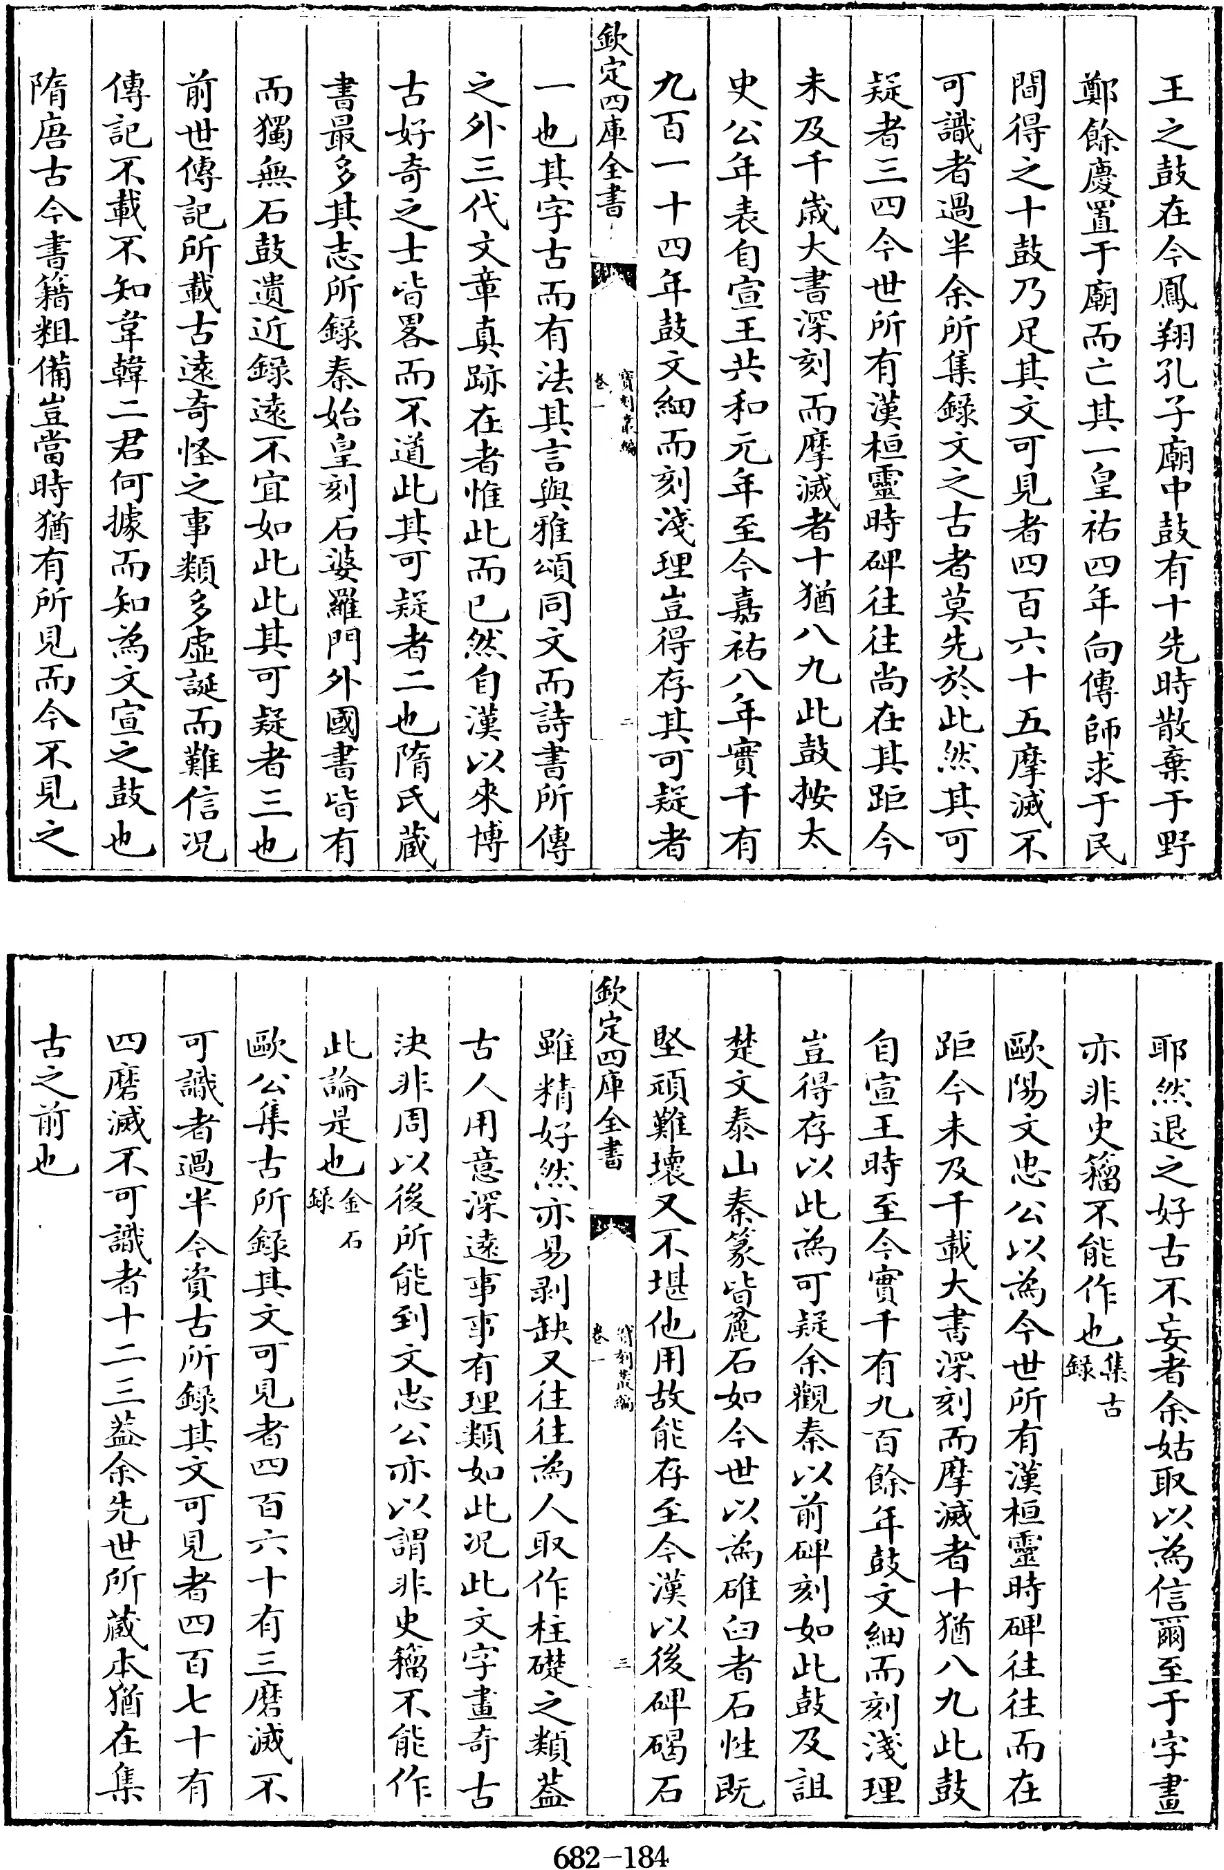 王之鼓在今鳳翔孔子廟中鼓有十先時散棄于野
鄭餘慶置于廟而亡其一皇祐四年向傳師求于民
間得之十鼓乃足其文可見者四百六十五摩滅不
可識者過半余所集錄文之古者莫先於此然其可
疑者三四今世所有漢桓靈時碑往往尚在其距今
未及千歲大書深刻而摩滅者十猶八九此鼓按太
史公年表自宣王共和元年至今嘉祐八年實千有
九百一十四年鼓文細而刻淺理豈得存其可疑者
欽定四庫全書
寶刻叢編
卷一
二
一也其字古而有法其言與雅頌同文而詩書所傳
之外三代文章真跡在者惟此而已然自漢以來博
古好奇之士皆畧而不道此其可疑者二也隋氏藏
書最多其志所錄秦始皇刻石婆羅門外國書皆有
而獨無石鼓遺近錄遠不宜如此此其可疑者三也
前世傳記所載古遠奇怪之事類多虛誕而難信况
傳記不載不知韋韓二君何據而知為文宣之鼓也
隋唐古今書籍粗備豈當時猶有所見而今不見之
耶然退之好古不妄者余姑取以為信爾至于字畫
亦非史籀不能作也集古錄
歐陽文忠公以為今世所有漢桓靈時碑往往而在
距今未及千載大書深刻而摩滅者十猶八九此鼓
自宣王時至今實千有九百餘年鼓文細而刻淺理
豈得存以此為可疑余觀秦以前碑刻如此鼓及詛
楚文泰山秦篆皆麄石如今世以為碓臼者石性既
堅頑難壞又不堪他用故能存至今漢以後碑碣石
欽定四庫全書
寶刻叢編
卷一
三
雖精好然亦易剥缺又往往為人取作柱礎之類葢
古人用意深遠事事有理類如此况此文字畫奇古
決非周以後所能到文忠公亦以謂非史籀不能作
此論是也金石錄
歐公集古所錄其文可見者四百六十有三磨滅不
可識者過半今資古所錄其文可見者四百七十有
四磨滅不可識者十二三葢余先世所藏本猶在集
古之前也
682-184